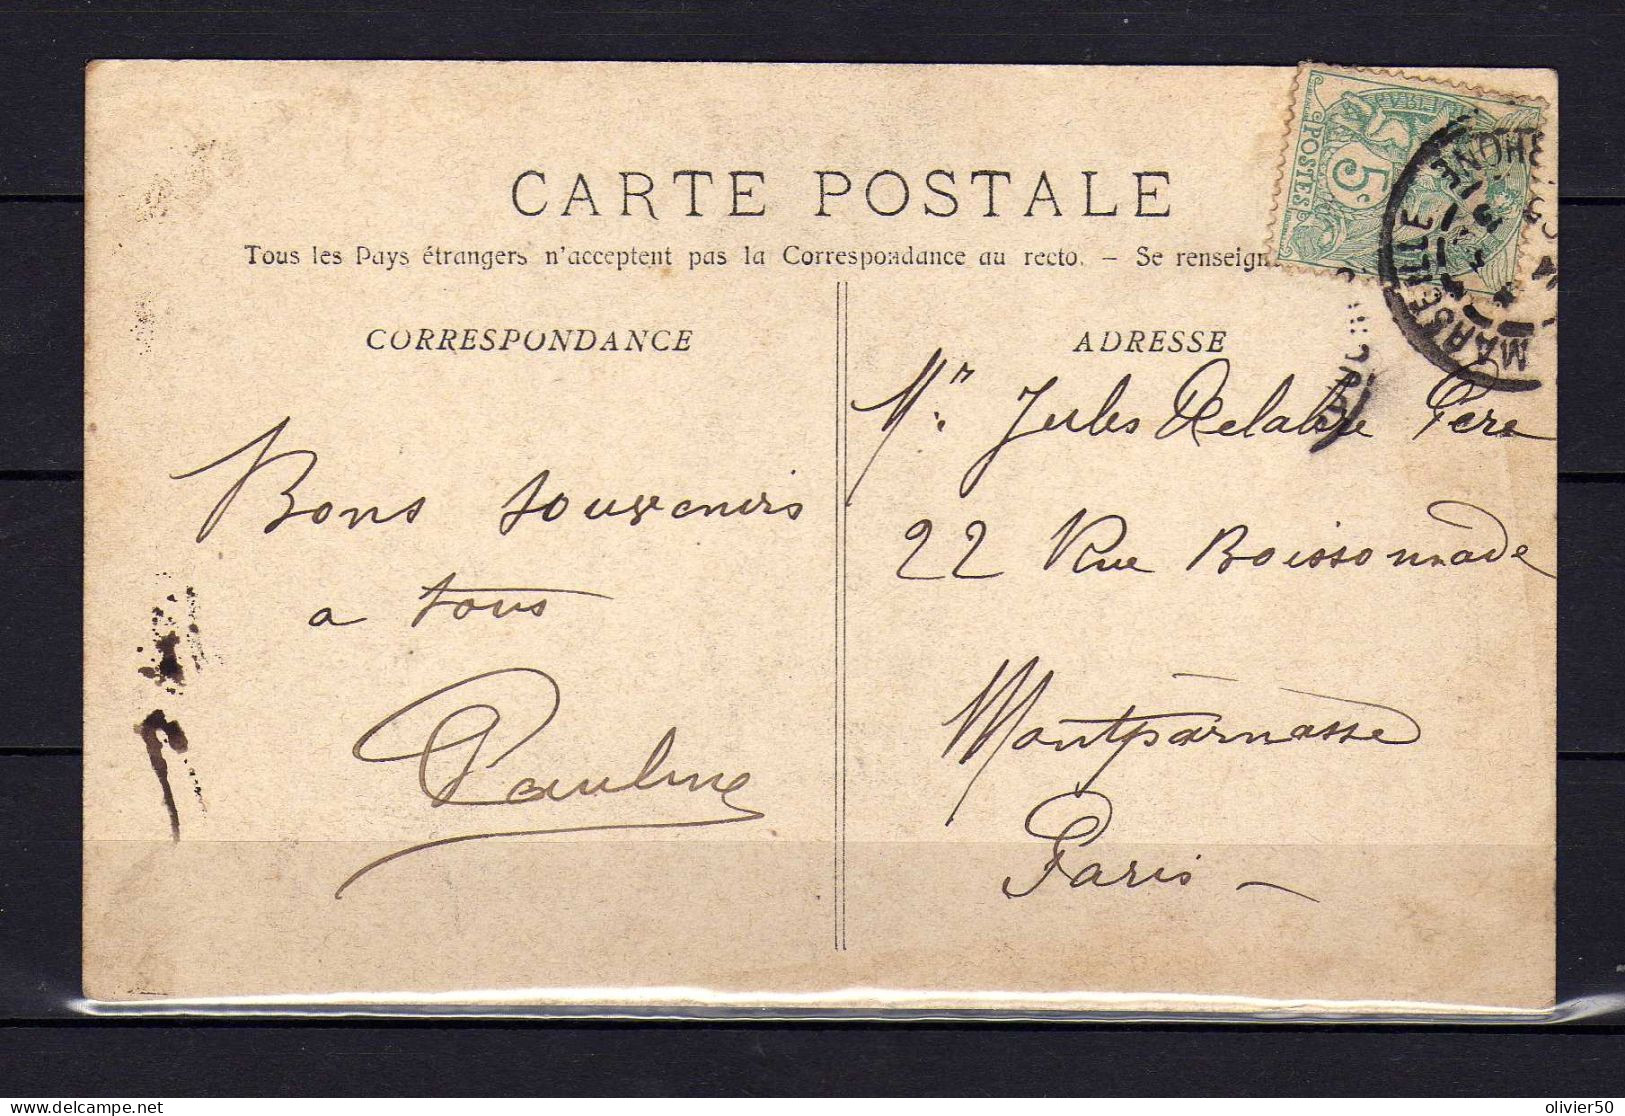 CARTE POSTALE
Tous les Pays étrangers n'acceptent pas la Correspondance au recto. – Se renseign
CORRESPONDANCE
Bons souvenirs
a tous
Pauline
ADRESSE
Mr. Jules Delabre Pere
22 Rue Boissonnade
Montparnasse
Paris –
POSTES
5c
MARSEILLE
RHONE
olivier50